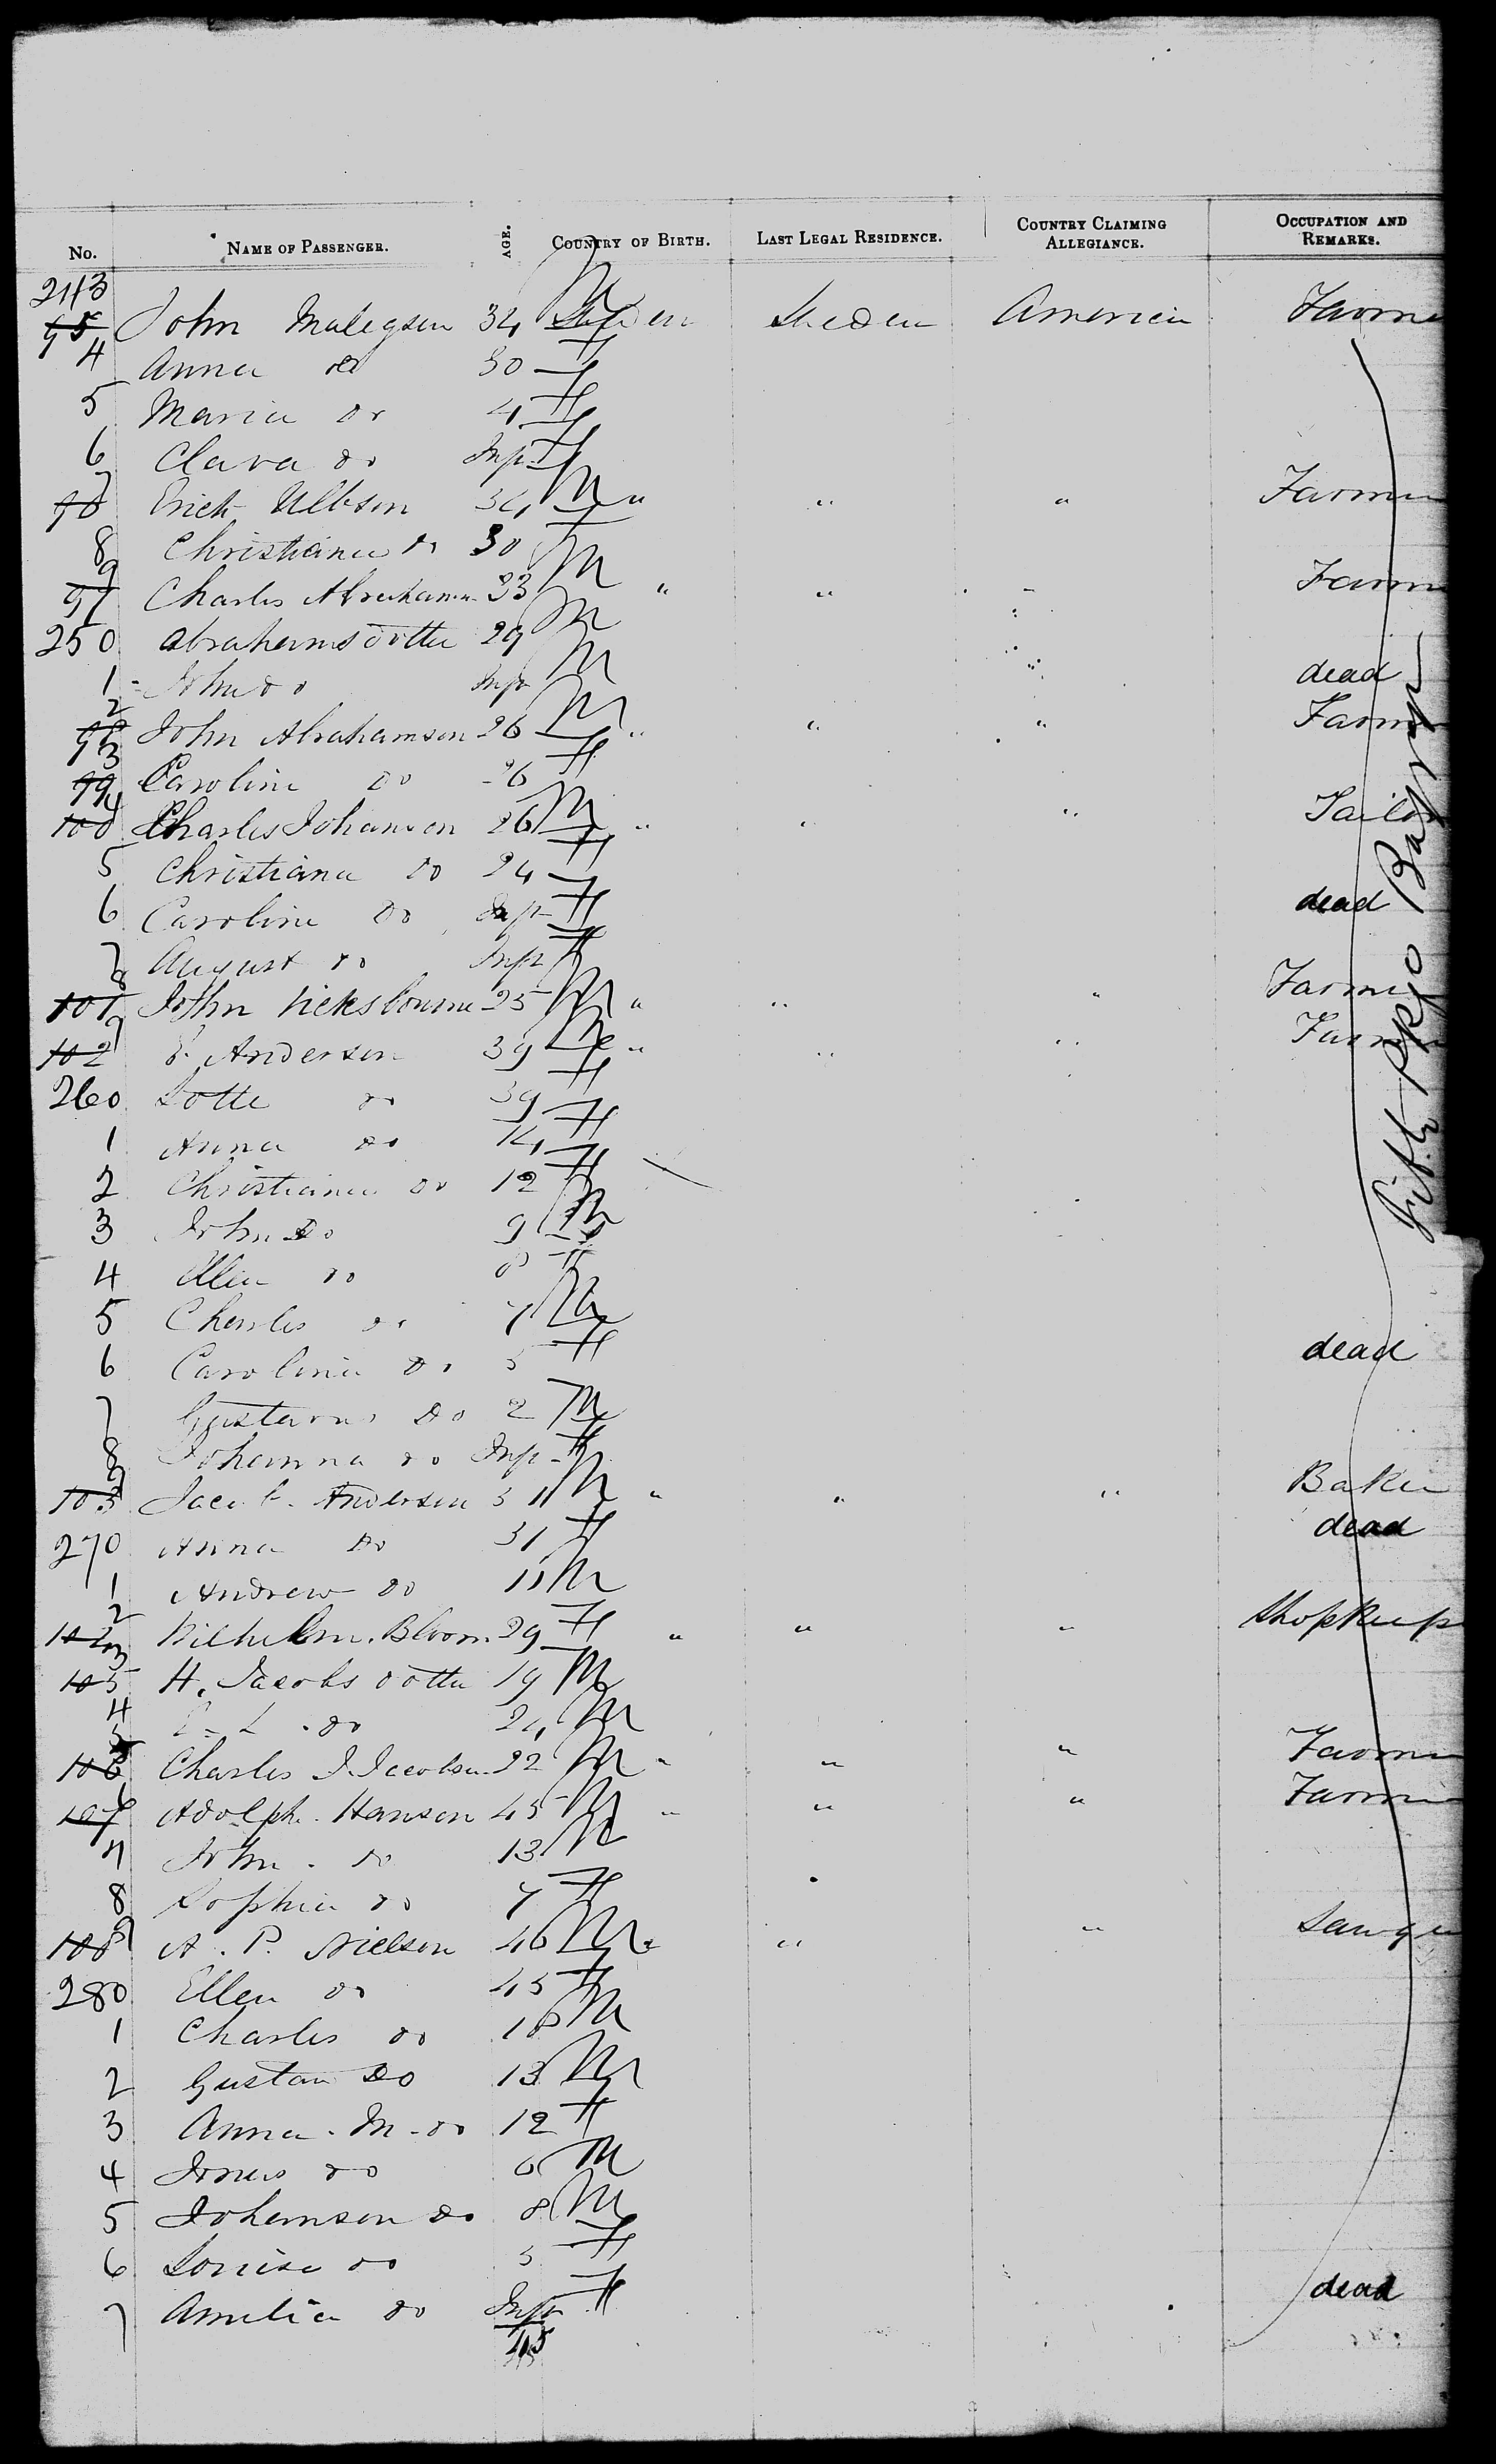 No. NAME OF PASSENGER. AGE. COUNTRY OF BIRTH. LAST LEGAL RESIDENCE. COUNTRY CLAIMING ALLEGIANCE. OCCUPATION AND REMARKS.
243
95 John 34 M Sweden Sweden America Farme
4 Anna do 30 F
5 Maria do 4 F
6 Clara do Inft F
7
96 Erick 34 M " " " Farme
8 Christiana do 30
9
97 Charles 33 M " " Farm
250 Abrahamsdotter 29 M
1 John do Inft M dead
2
98 John Abrahamson 26 M " " " Farm
3
99 Caroline do 26 F
4
100 Charles Johanson 26 M " " " Tailo
5 Christiana do 24 F
6 Caroline do Inft F dead
7 August do Inft
8
101 John 25 M " " " Farme
9
102 Anderson 39 " " " Farm
260 Lotte do 39 F
1 Anna do 14 F
2 Christiana do 12 F
3 John do 9 M
4 Ellen do 8 F
5 Charles do 7 M
6 Carolina do 5 F dead
7 Gustavus do 2 M
8 Johanna do Inft F
9
103 Jacob Anderson 31 M " " " Bake
270 Anna do 31 F dead
1 Andrew do 11 M
2
Wilhelm. Bloom 29 F " " " Shopkeep
3
105 H. Jacobsdotter 19 M
4 do 24 M
5
106 Charles J. Jacobson 22 M " " " Farme
6
107 Adolph. Hanson 45 M " " " Farm
7 John. do 13 M
8 Sophia do 7 F
9
108 A. P. Nielson 46 M " " " Sawye
280 Ellen do 45 F
1 Charles do 18 M
2 Gustav do 13 M
3 Anna. M. do 12 F
4 Jonas do 6 M
5 Johanson do 8 M
6 Louisa do 5 F
7 Amelia do Inft F dead
45